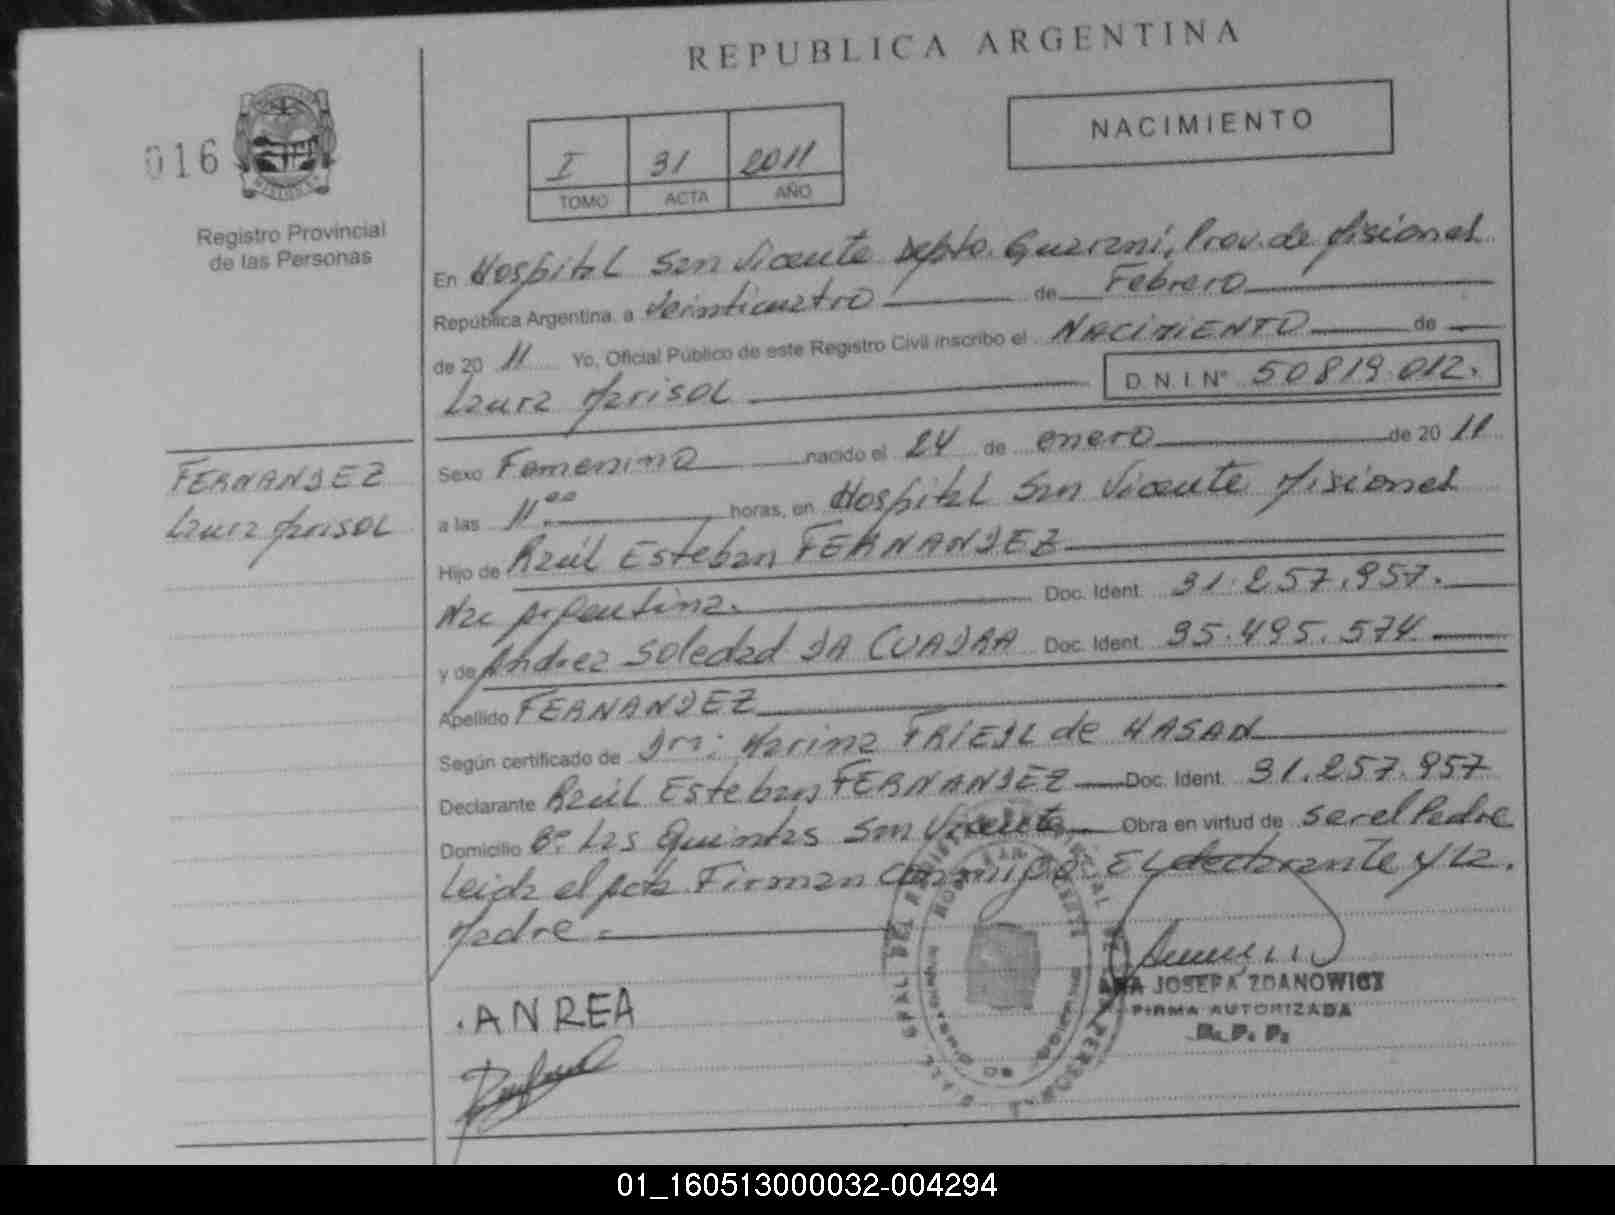 REPUBLICA ARGENTINA
NACIMIENTO
016
I 31 2011
TOMO ACTA AÑO
Registro Provincial
de las Personas
En Hospital San Vicente Depto. Guaraní, Prov. de Misiones
República Argentina, a Veinticuatro de Febrero
de 20 11 Yo, Oficial Público de este Registro Civil inscribo el NACIMIENTO de
Laura Marisol D.N.I. Nº 50819.012.
FERNANDEZ
Laura Marisol
Sexo Femenino nacido el 24 de enero de 20 11
a las 11.00 horas, en Hospital San Vicente Misiones
Hijo de Raúl Esteban FERNANDEZ
Nac Argentina. Doc. Ident. 31.257.957.
y de Andrea Soledad DA CUADRA Doc. Ident. 35.495.574
Apellido FERNANDEZ
Según certificado de Dra: Marina FRIEDL de HASAN
Declarante Raúl Esteban FERNANDEZ Doc. Ident. 31.257.957
Domicilio Bº Las Quintas San Vicente Obra en virtud de ser el Padre
Leida el Acta Firman Conmigo El declarante y La
Madre.
ANREA
ANA JOSEFA ZDANOWICZ
FIRMA AUTORIZADA
R. P. P.
01_160513000032-004294